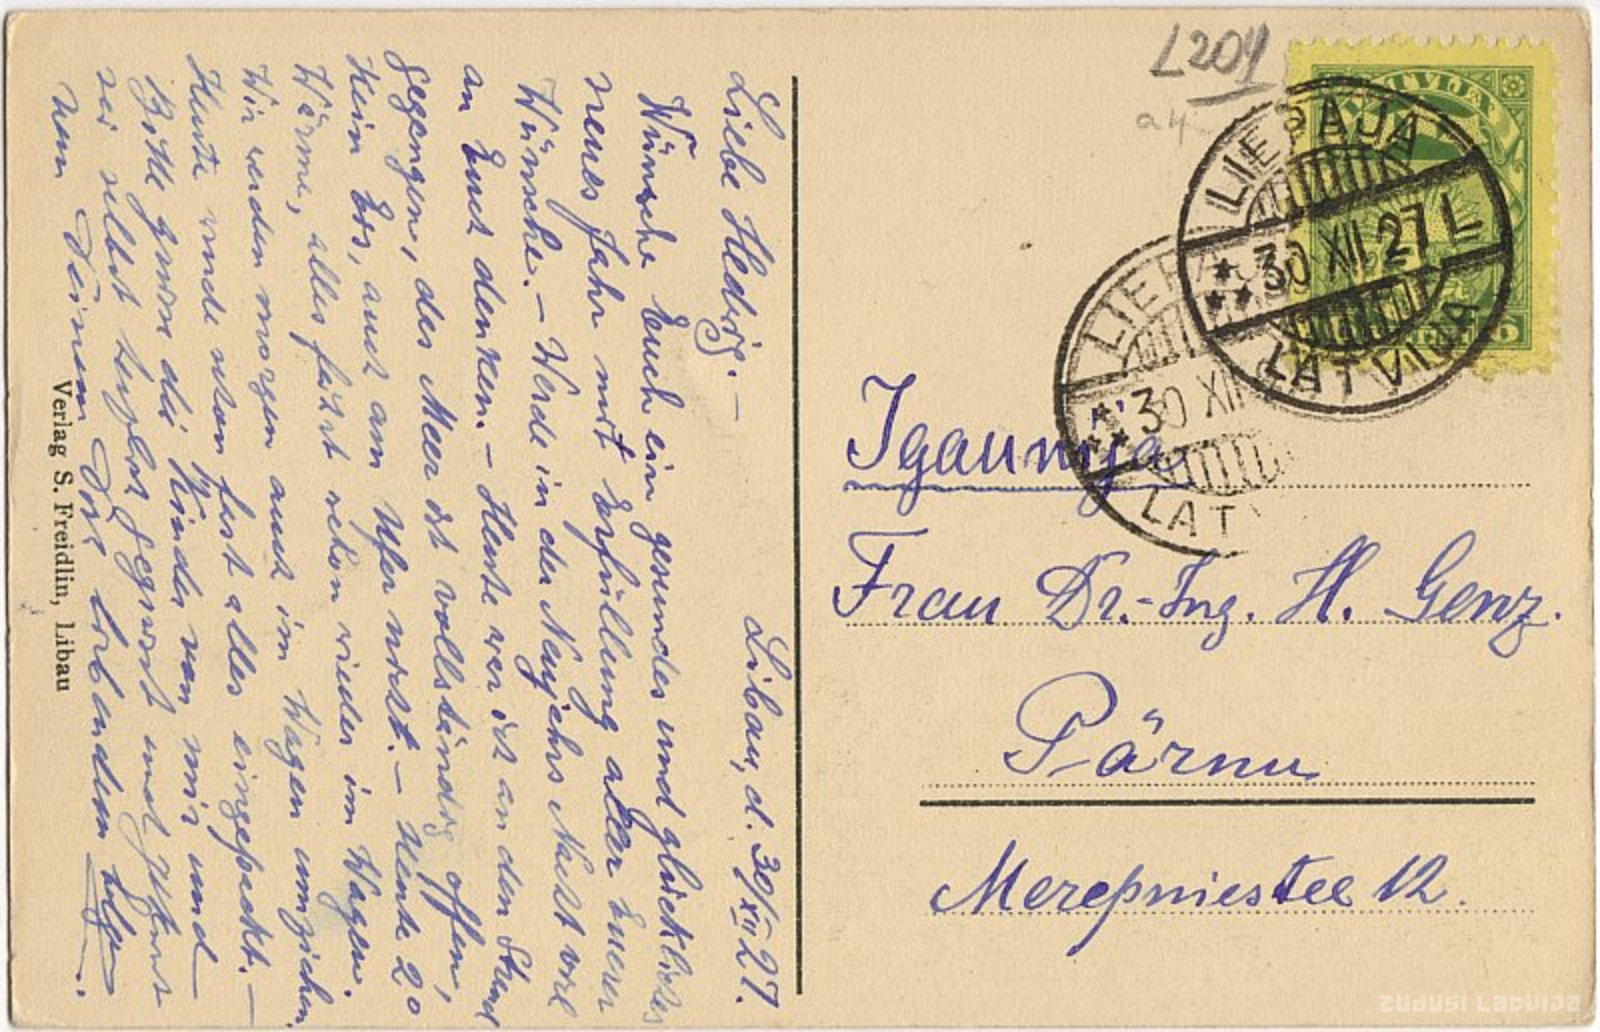 Libau, d. 30/XII 27.
Liebe Hedwig. –
Wünsche Euch ein gesundes und glückliches
neues Jahr mit Erfüllung aller Euerer
Wünsche. – Werde in der Neujahrs Nacht viel
an Euch denken. – Heute war ich an den Strand
gegangen, das Meer ist vollständig offen,
kein Eis, auch am Ufer nicht. – Heute 2°
Wärme, alles fährt schon wieder im Wagen.
Wir werden morgen auch im Wagen umziehen.
Heute wurde schon fast alles eingepackt. –
Bitte grüsse die Kinder von mir und
sei selbst herzlich gegrüsst und geküsst
von Deinem Dich liebenden
Verlag S. Freidlin, Libau
L204
a4
LATVIJA
LIEPAJA
30 XII 27 L
LATVIJA
LIEPA
30 XII
LATV
Igaunija
Frau Dr.-Ing. H. Genz.
Pärnu
Merepuiestee 12.
ZUDUSI LATVIJA